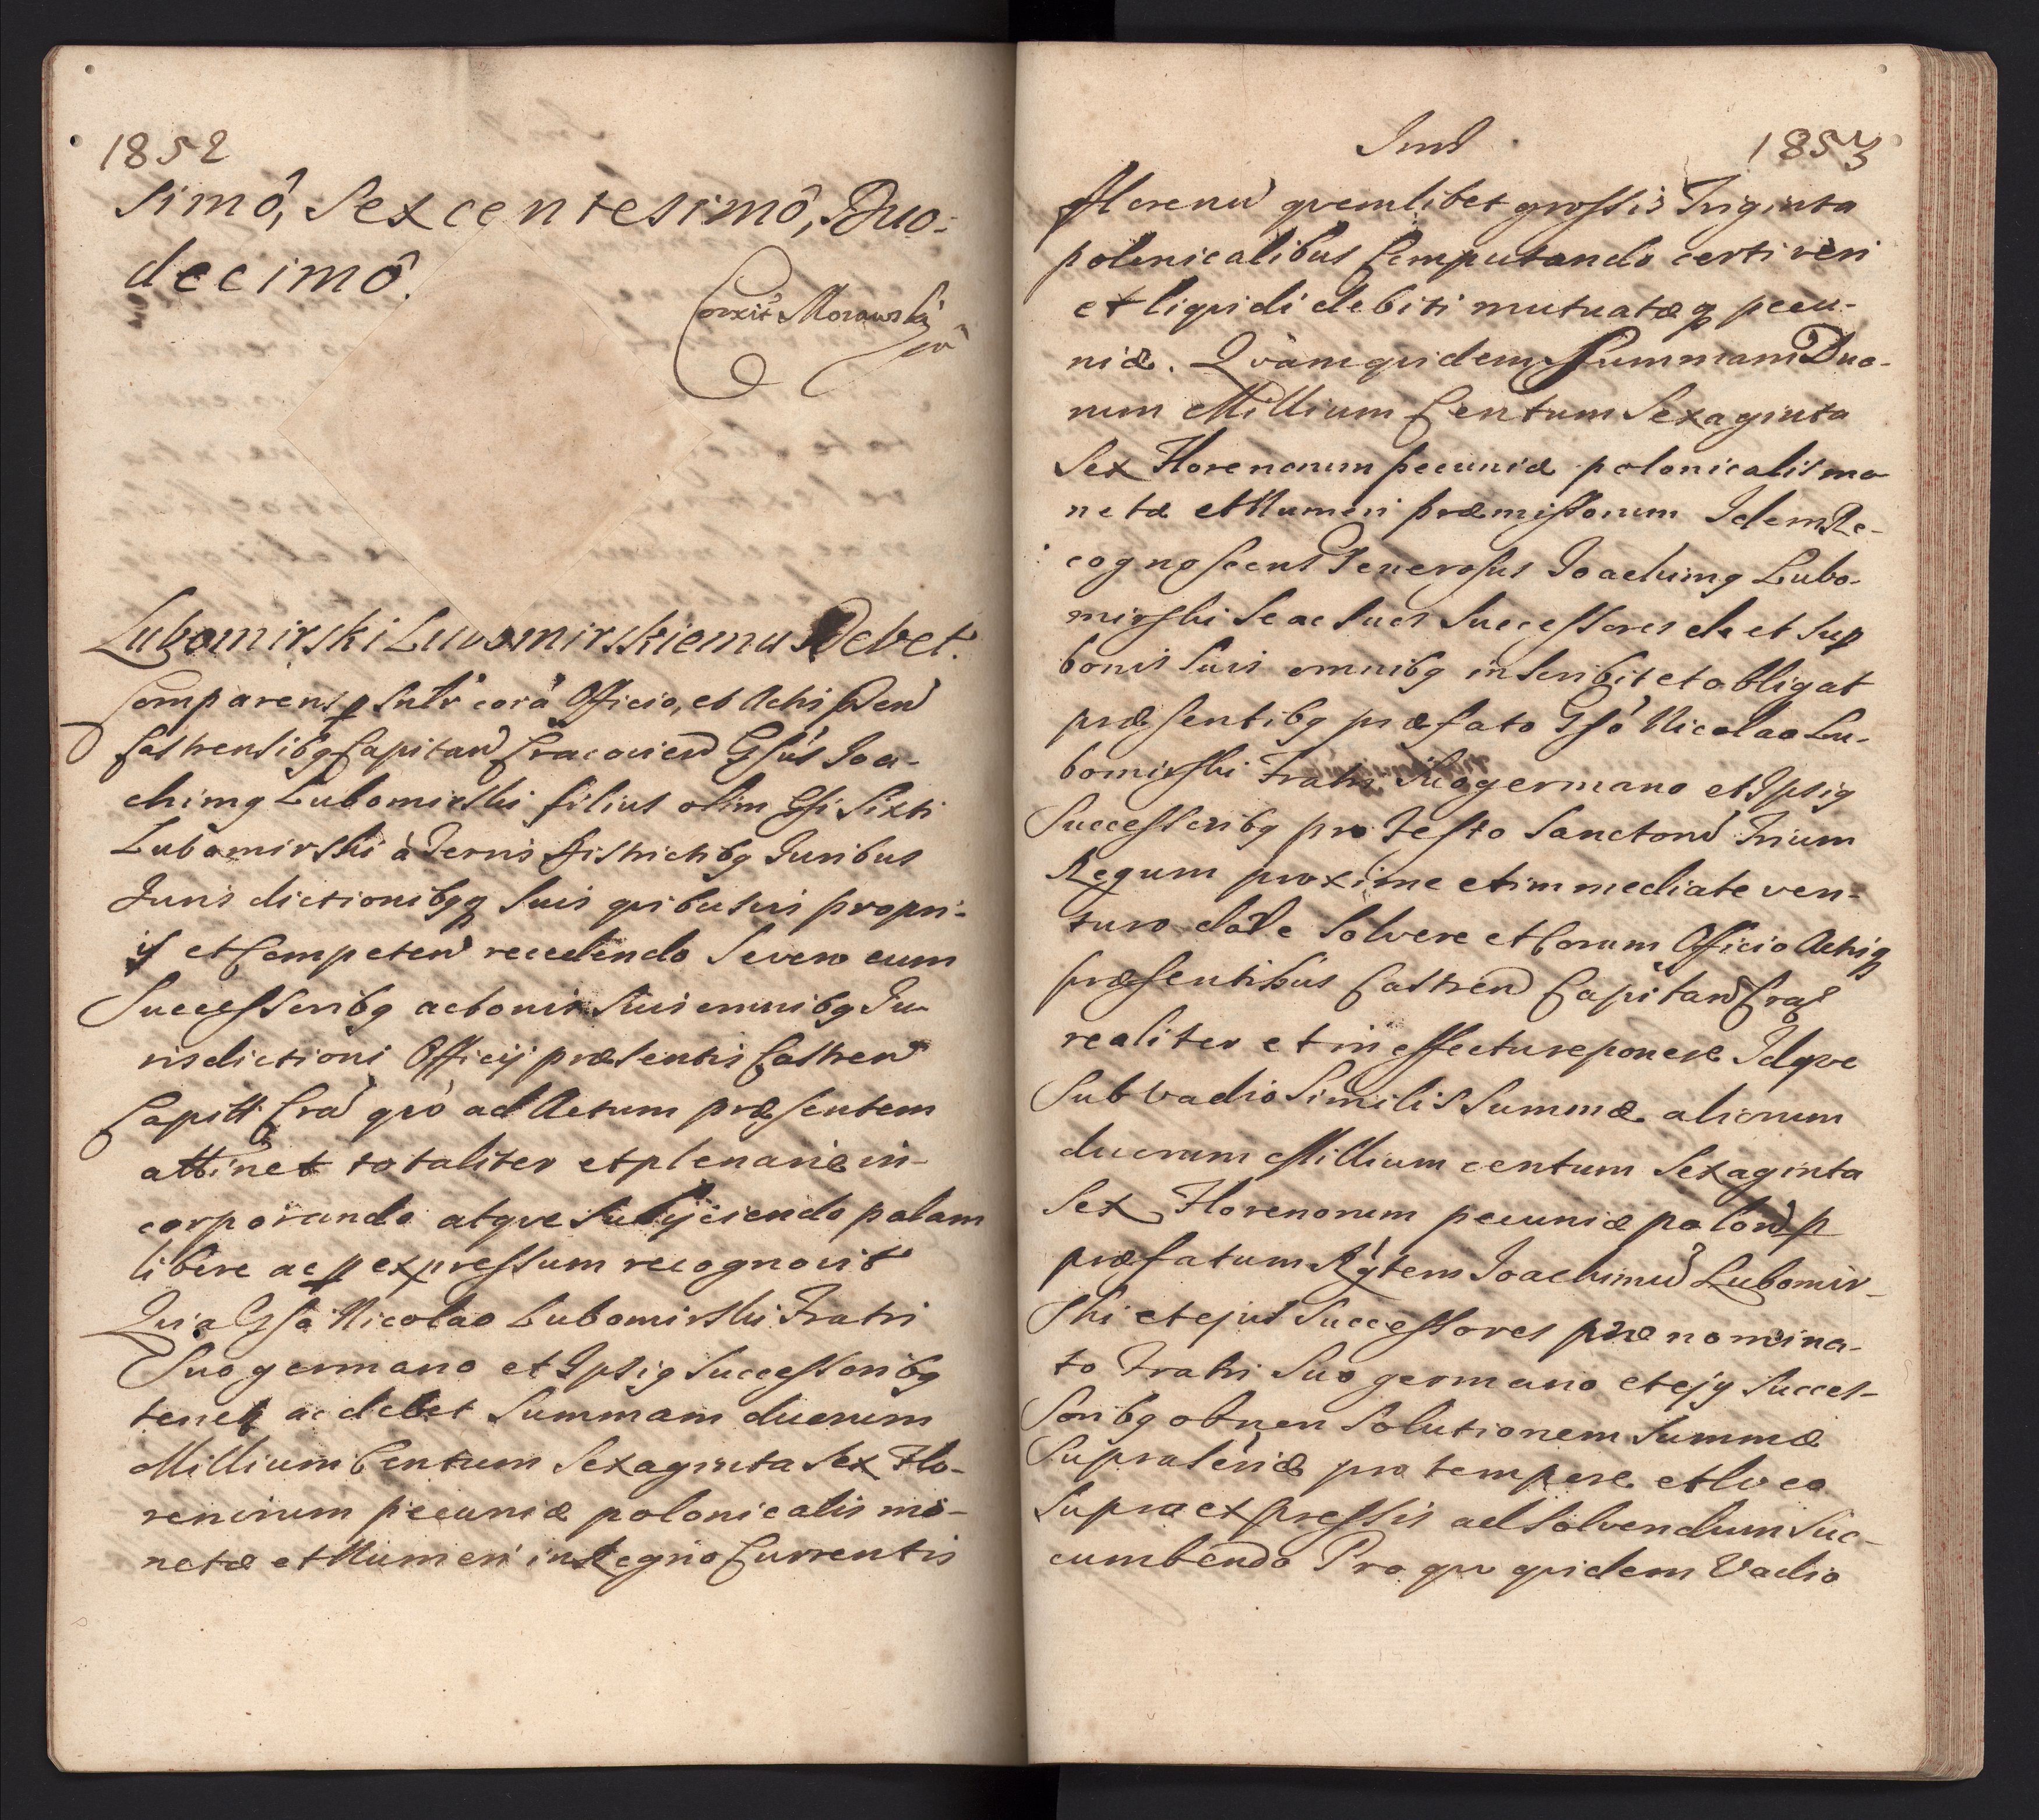 1852
simô, Sexcentesimô, Duo-
decimô.
Corxit Morawski
Lubomirski Lubomirskiemu Debet.
Comparens p sntr corã Officio, et Actis pden
Castrensibq Capitan Cracovien Gsus Joa-
chimq Lubomirski filius olim Gsi Sixti
Lubomirski à Terris Districtibq Juribus
Juris dictionibqq suis quibusvis propri-
is et Competen recedendo Severo cum
Successoribq ac bonis Suis omnibq Ju-
risdictioni Officij præsentis Castren
Capitt Cra qúo ad Actum præsentem
attinet totaliter et plenarie in-
corporando atqve Subijciendo palam
libere ac p expressum recognovit
Quia Gso Nicolao Lubomirski Fratri
Suo germano et Ipsiq Successoribq
tenet ac debet Summam duorum
Millium Centum Sexaginta Sex Flo-
renorum pecuniæ polonicalis mo-
netæ et Numeri in Regno Currentis
1853
Florenu qvemlibet grossis Triginta
polonicalibus Computando certi veri
et liqvidi debiti mutuatæq pecu-
niæ. Qvam qvidem Summam Duo-
rum Millium Centum Sexaginta
Sex Florenorum pecuniæ polonicalis mo
netæ et Numeri præmissorum Idem Re-
cognoscens Generosus Joachimq Lubo-
mirski Se ac Suos Successores de et Sup
bonis Suis omnibq inscribit et obligat
præsentibq præfato Gso Nicolao Lu-
bomirski Fratri Suo germano et Ipsiq
Successoribq pro Festo Sanctoru Trium
Regum proxime et immediate ven-
turo dare Solvere et Coram Officio Actisq
præsentibus Castren Capitan Cra
realiter et in effectu reponere Idqve
Sub vadio Similis Summæ aliorum
duorum Millium centum Sexaginta
Sex Florenorum pecuniæ polon p
præfatum Rgtem Joachimu Lubomir-
ski et ejus Successores prænomina-
to Fratri Suo germano et ejq Succes-
soribq ob non Solutionem Summæ
Suprascriæ pro tempore et loco
Supra expressis ad Solvendum Suc-
cumbendo Pro qvo qvidem Vadio